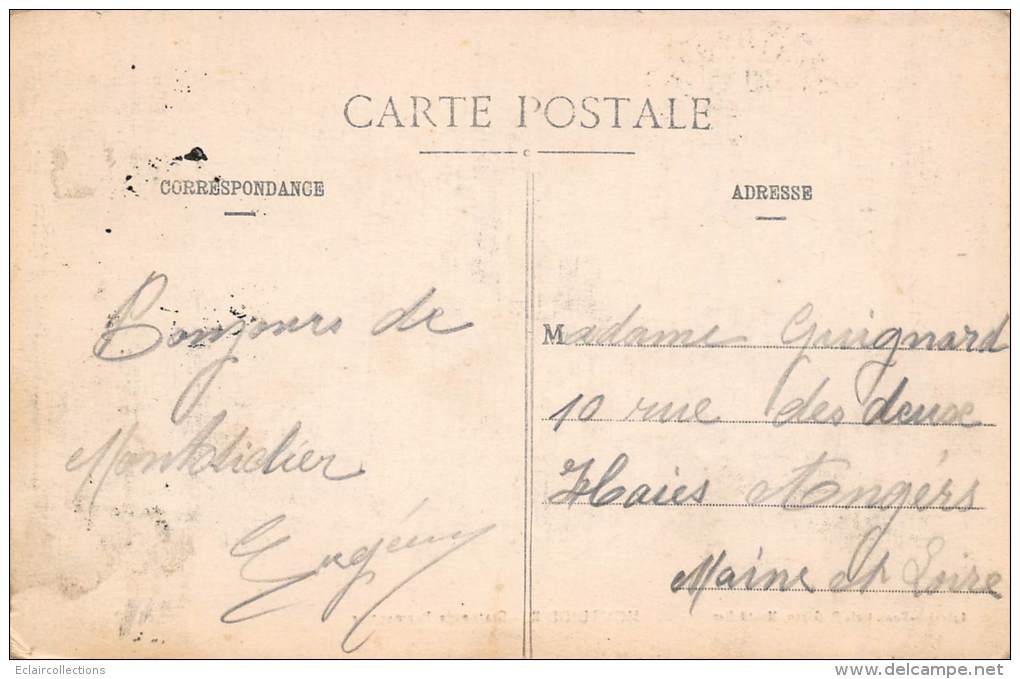 CARTE POSTALE
CORRESPONDANCE
ADRESSE
Bonjours de
Montdidier
Eugénie
Madame Guignard
10 rue des deux
Haies Angérs
Maine et Loire
Eclaircollections
www.delcampe.net